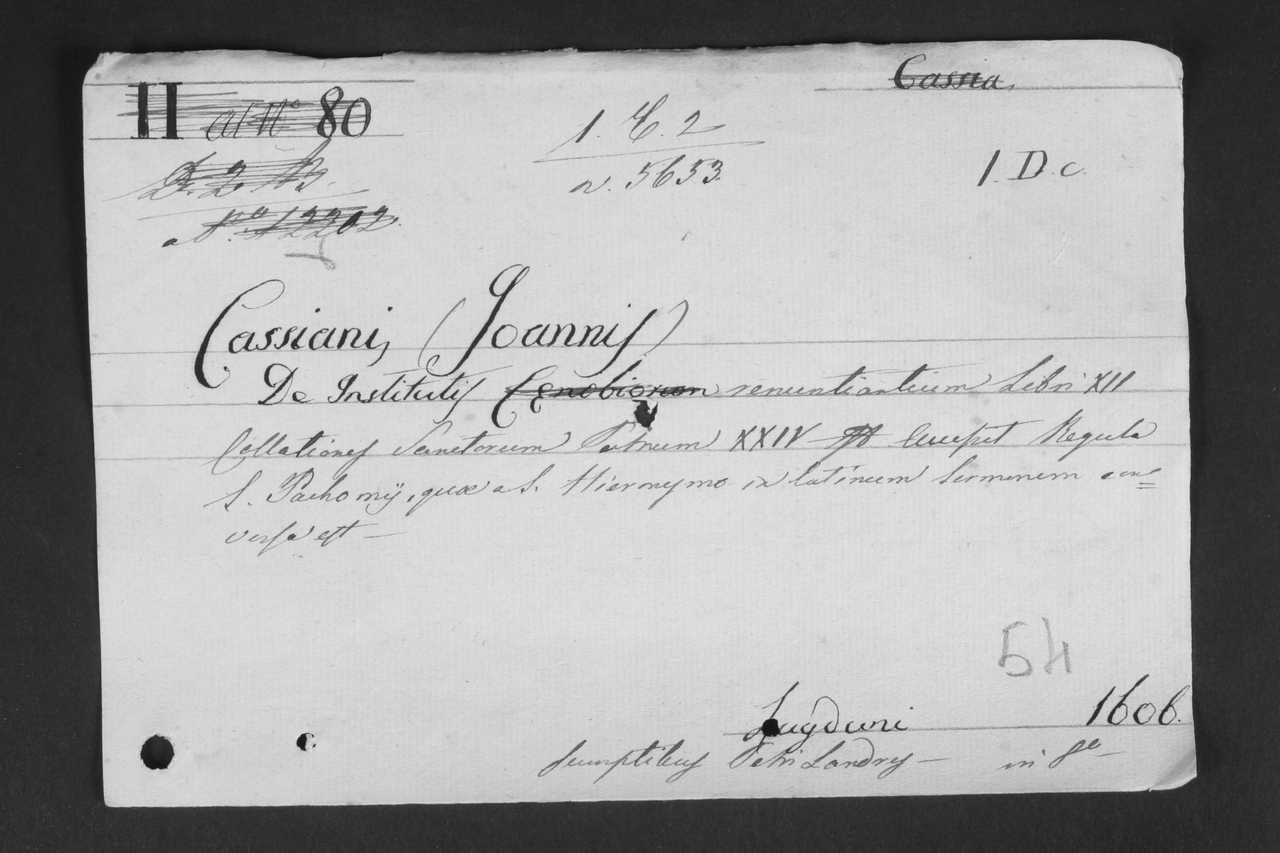 Cassia.
II al N.º 80
1. E. 2
n. 5653.
1. D. c.
D. 2. B.
N.º 12202.
Cassiani, (Joannis)
De Institutis Cenobiorum renuntiantium Libri XII
Collationes Sanctorum Patrum XXIV Regula
S. Pachomij, quæ a S. Hieronymo in latinum sermonem con=
versa est —
54
Lugduni 1606.
sumptibus Petri Landry — in 8º